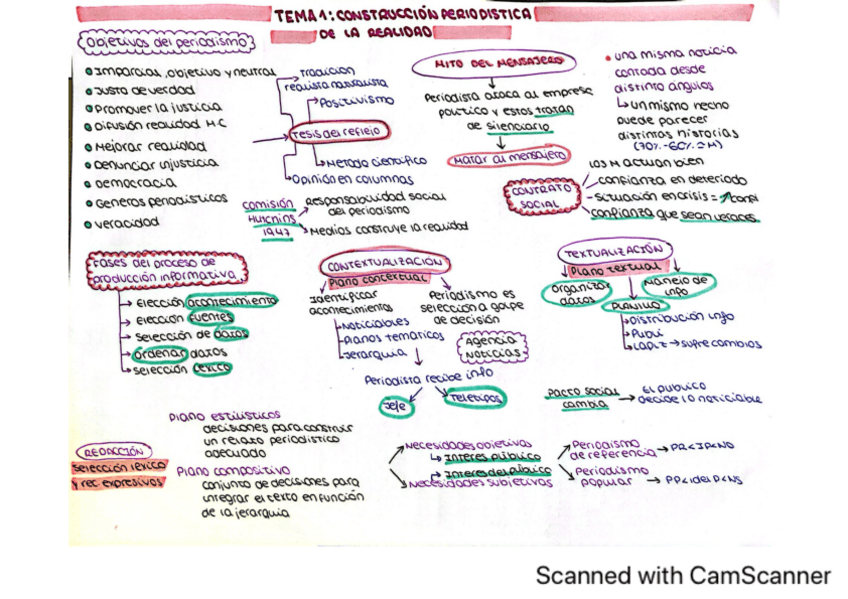 TEMA 1: CONSTRUCCIÓN PERIODISTICA
DE LA REALIDAD
Objetivos del periodismo
Imparcial, objetivo y neutral
Justa de verdad
Promover la justicia
Difusión realidad H-C
Mejorar realidad
Denunciar injusticia
Democracia
Generos periodisticos
Veracidad
Tradicion
requista naturalista
Positivismo
Tesis del reflejo
Metodo cientifico
Opinión en columnas
Comisión
Hutchins
1947
Responsabilidad social
del periodismo
Medios construye la realidad
MITO DEL MENSAJERO
Periodista ataca al empresa
politico y estos tratan
de silenciarlo
Matar al mensajero
una misma noticia
contada desde
distinto angulos
un mismo hecho
puede parecer
distintas historias
CONTRATO
SOCIAL
Los M actuan bien
confianza en deterioro
situación en crisis =
confianza que sean veraces
Fases del proceso de
producción informativa
Elección acontecimiento
elección fuentes
selección de datos
ordenar datos
selección léxico
CONTEXTUALIZACIÓN
Plano contextual
Identificar
acontecimientos
Noticiables
Planos tematicos
Jerarquia
Periodismo es
selección a golpe
de decisión
Agencia
Noticias
Periodista recibe info
Jefe
Teletipos
TEXTUALIZACIÓN
Plano textual
Organizar
datos
Manejo de
info
PLANILLO
Distribución info
Publi
LAPIZ → sufre cambios
Pacto social
cambia
EL publico
decide lo noticiable
REDACCIÓN
Selección lexico
y rec expresivos
Plano estilisticos
decisiones para construir
un relato periodistico
adecuado
Plano compositivo
conjunto de decisiones para
integrar el texto en función
de la jerarquia
Necesidades objetivas
Interes público
Interes del público
Necesidades subjetivas
Periodismo
de referencia → PR<IP<NO
Periodismo
popular → PP<IdelP<NS
Scanned with CamScanner